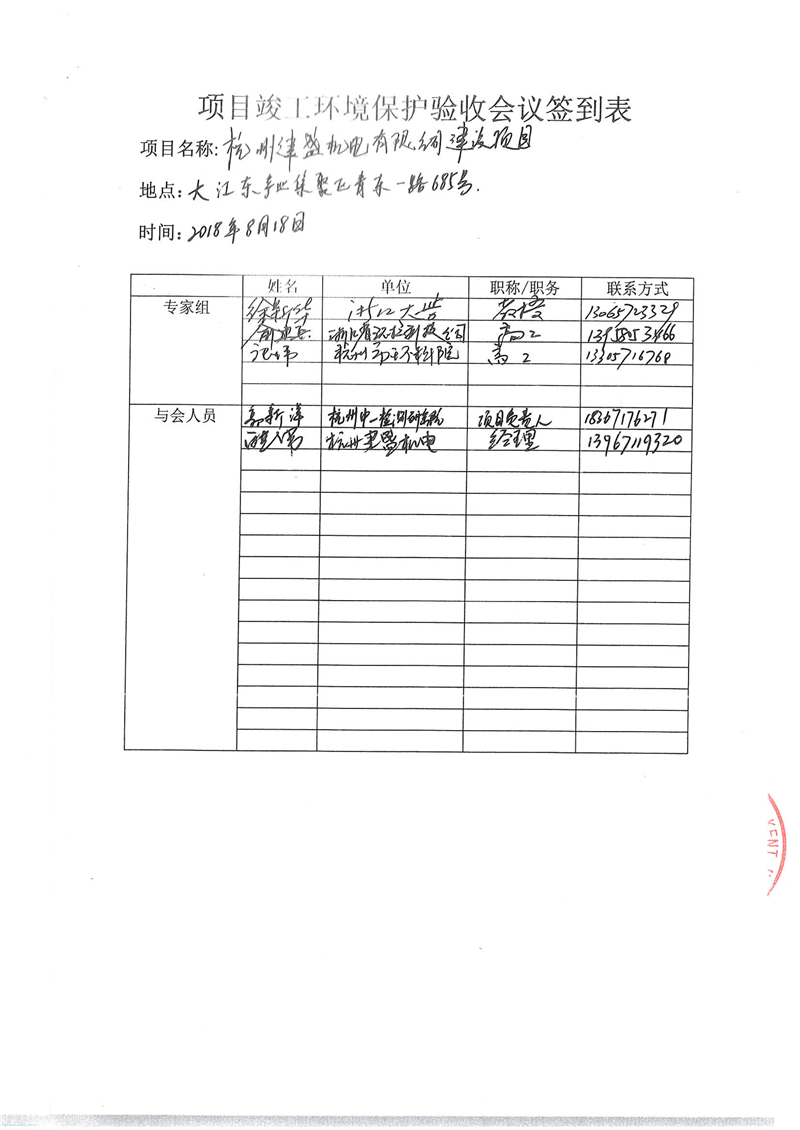 项目竣工环境保护验收会议签到表
项目名称: 杭州建盛机电有限公司建设项目
地点: 大江东产业集聚区青东一路685号.
时间: 2018年8月18日
姓名 单位 职称/职务 联系方式
专家组 徐新华 浙江大学 教授 13065723329
高工 13958053466
高工 13305716768
与会人员 郭新洋 杭州中一检测研究院 项目负责人 18367176271
杭州建盛机电 经理 13967119320